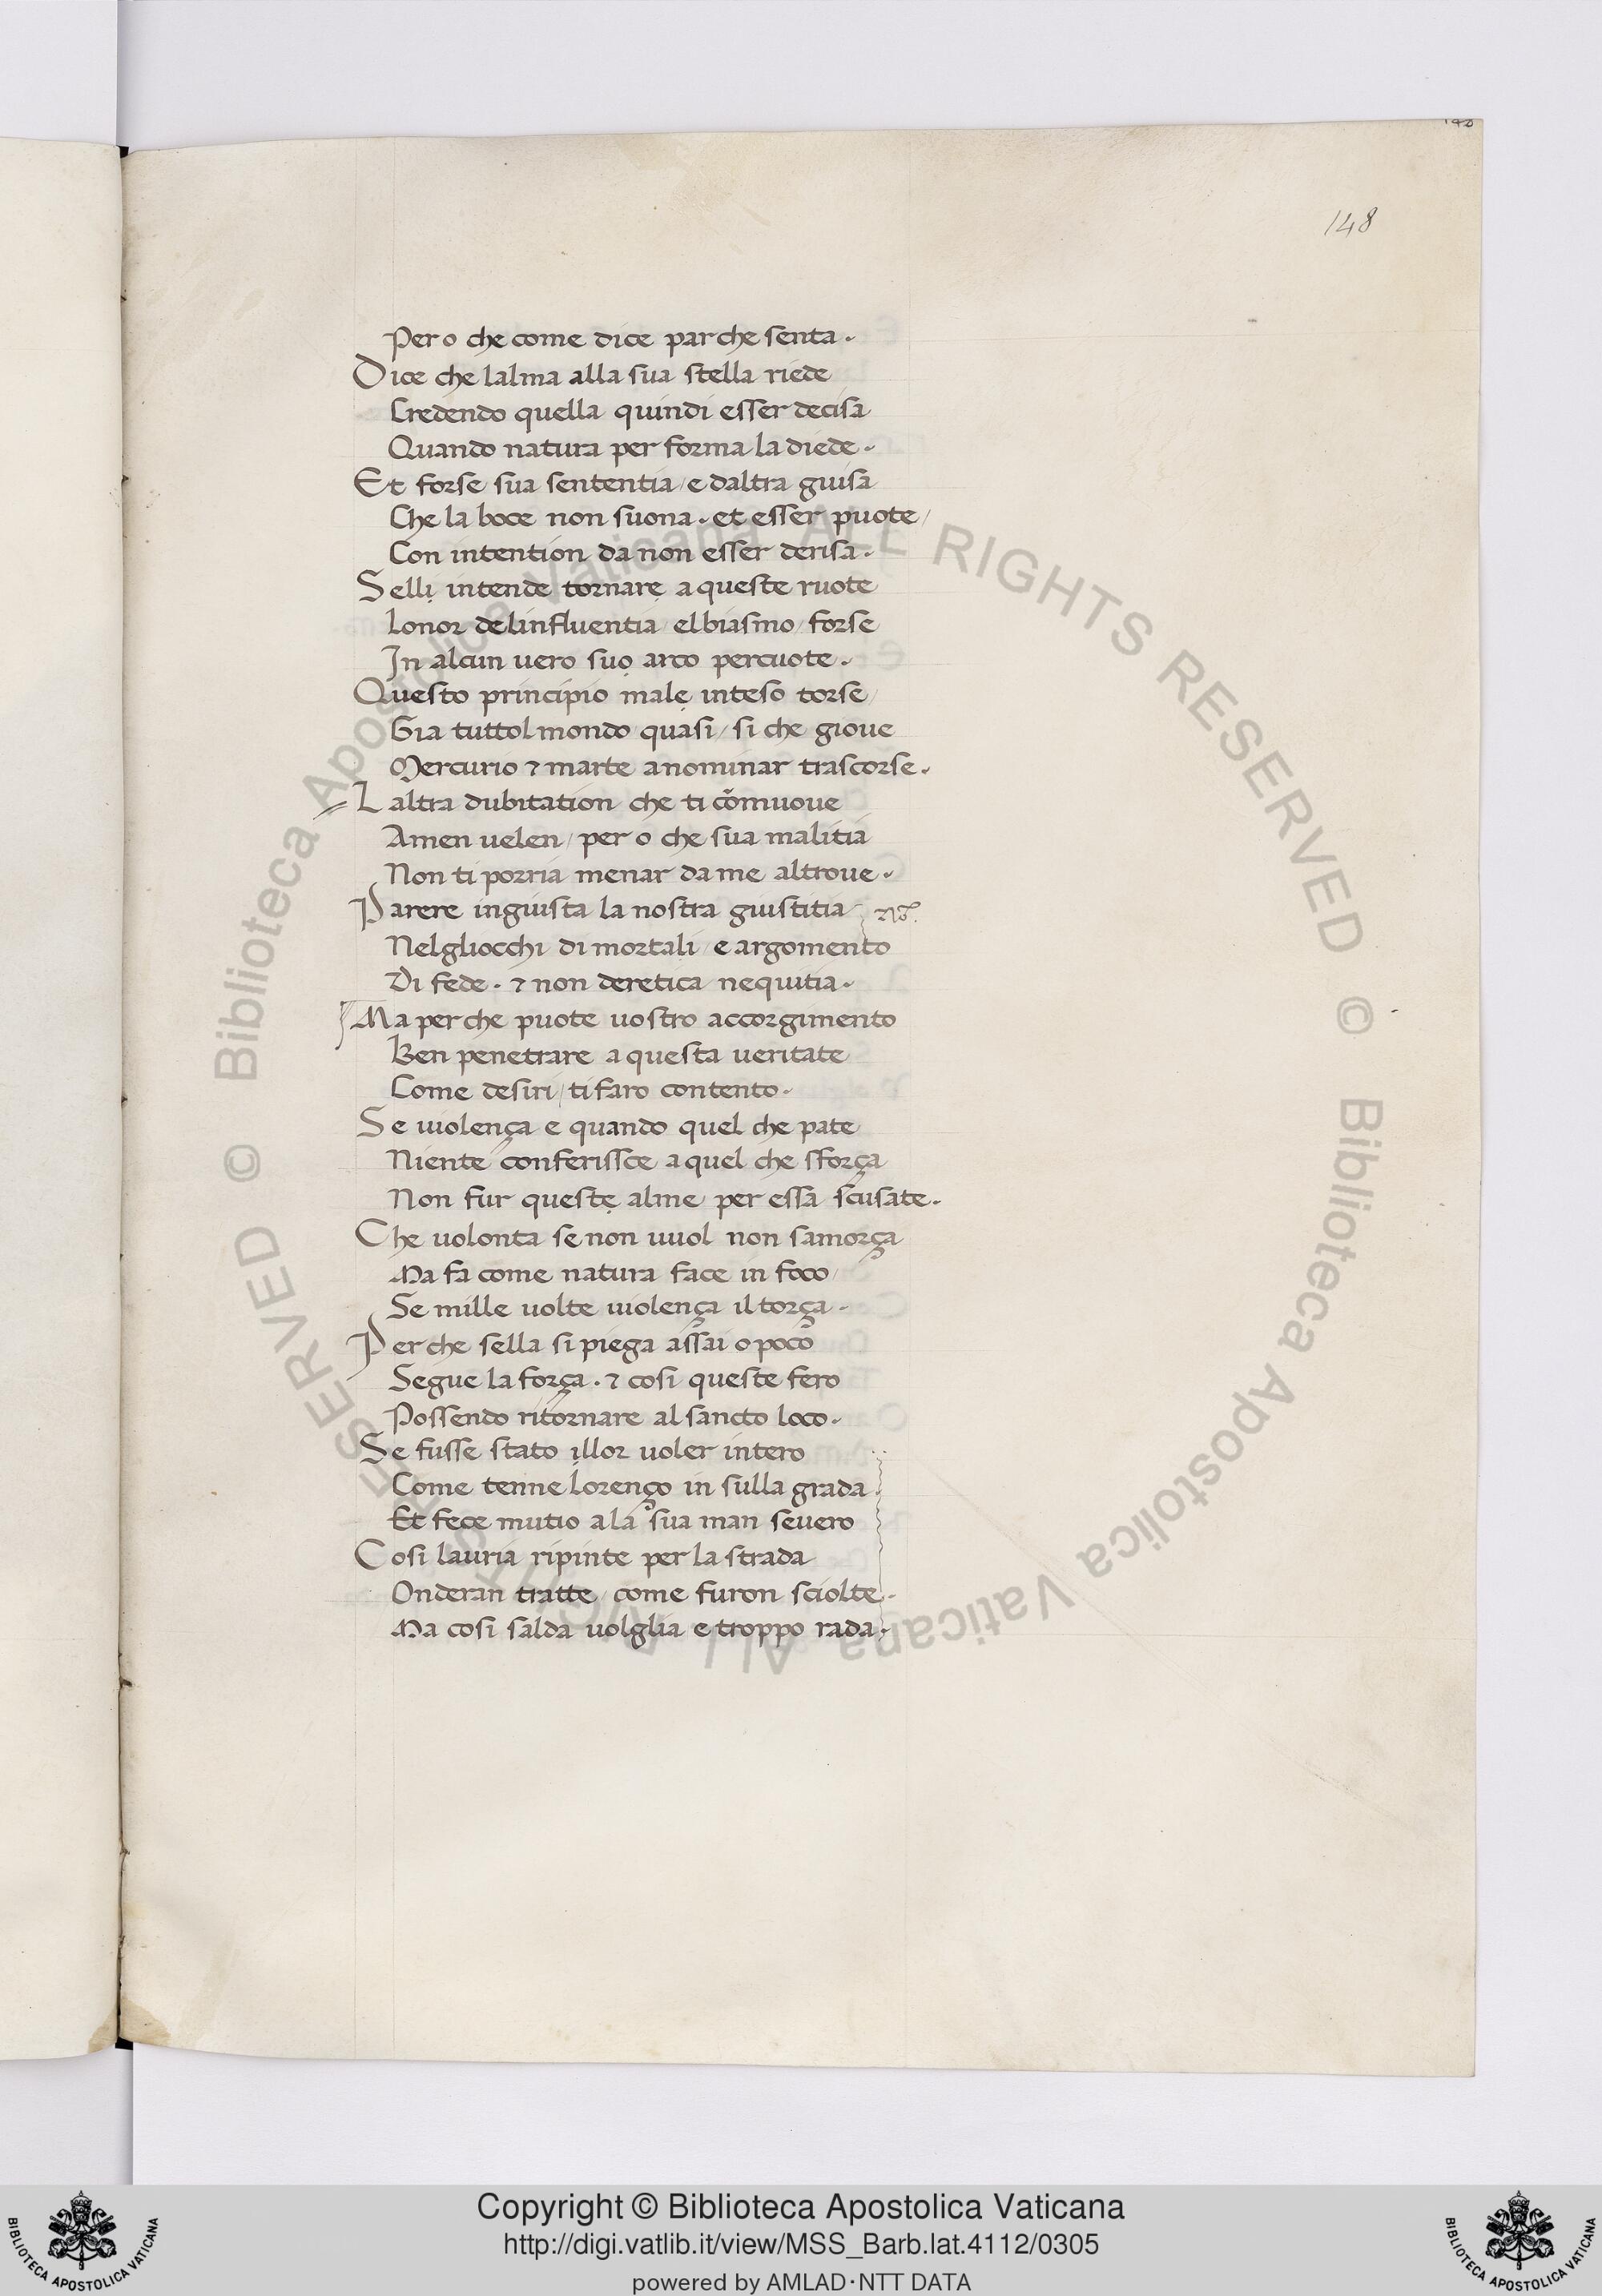 148
Pero che come dice par che senta.
Dice che lalma alla sua stella riede
Credendo quella quindi esser decisa
Quando natura per forma la diede.
Et forse sua sententia / e daltra guisa
Che la boce non suona. et esser puote /
Con intention da non esser derisa.
Selli intende tornare a queste ruote
Lonor delinfluentia / el biasmo / forse
In alcun uero suo arco percuote.
Questo principio male inteso torse /
Gia tuttol mondo quasi / si che gioue
Mercurio ⁊ marte a nominar trascorse.
Laltra dubitation che ti cōmuoue
A men uelen / pero che sua malitia
Non ti porria menar da me altroue.
Parere ingiusta la nostra giustitia
Nelgliocchi di mortali / e argomento
Di fede. ⁊ non deretica nequitia.
Ma perche puote uostro accorgimento
Ben penetrare a questa ueritate
Come desiri / ti faro contento.
Se uiolença e quando quel che pate
Niente conferissce a quel che sforça
Non fur queste alme per essa scusate.
Che uolonta se non uuol non samorça
Ma fa come natura face in foco /
Se mille uolte uiolença il torça.
Perche sella si piega assai o poco
Segue la força. ⁊ cosi queste fero
Possendo ritornare al sancto loco.
Se fusse stato illor uoler intero
Come tenne Lorenço in sulla grada
Et fece mutio a la sua man seuero
Cosi lauria ripinte per la strada
Onderan tratte / come furon sciolte.
Ma cosi salda uolglia e troppo rada.
© Biblioteca Apostolica Vaticana ALL RIGHTS RESERVED © Biblioteca Apostolica Vaticana ALL RIGHTS RESERVED
Copyright © Biblioteca Apostolica Vaticana
http://digi.vatlib.it/view/MSS_Barb.lat.4112/0305
powered by AMLAD·NTT DATA
BIBLIOTECA APOSTOLICA VATICANA
BIBLIOTECA APOSTOLICA VATICANA